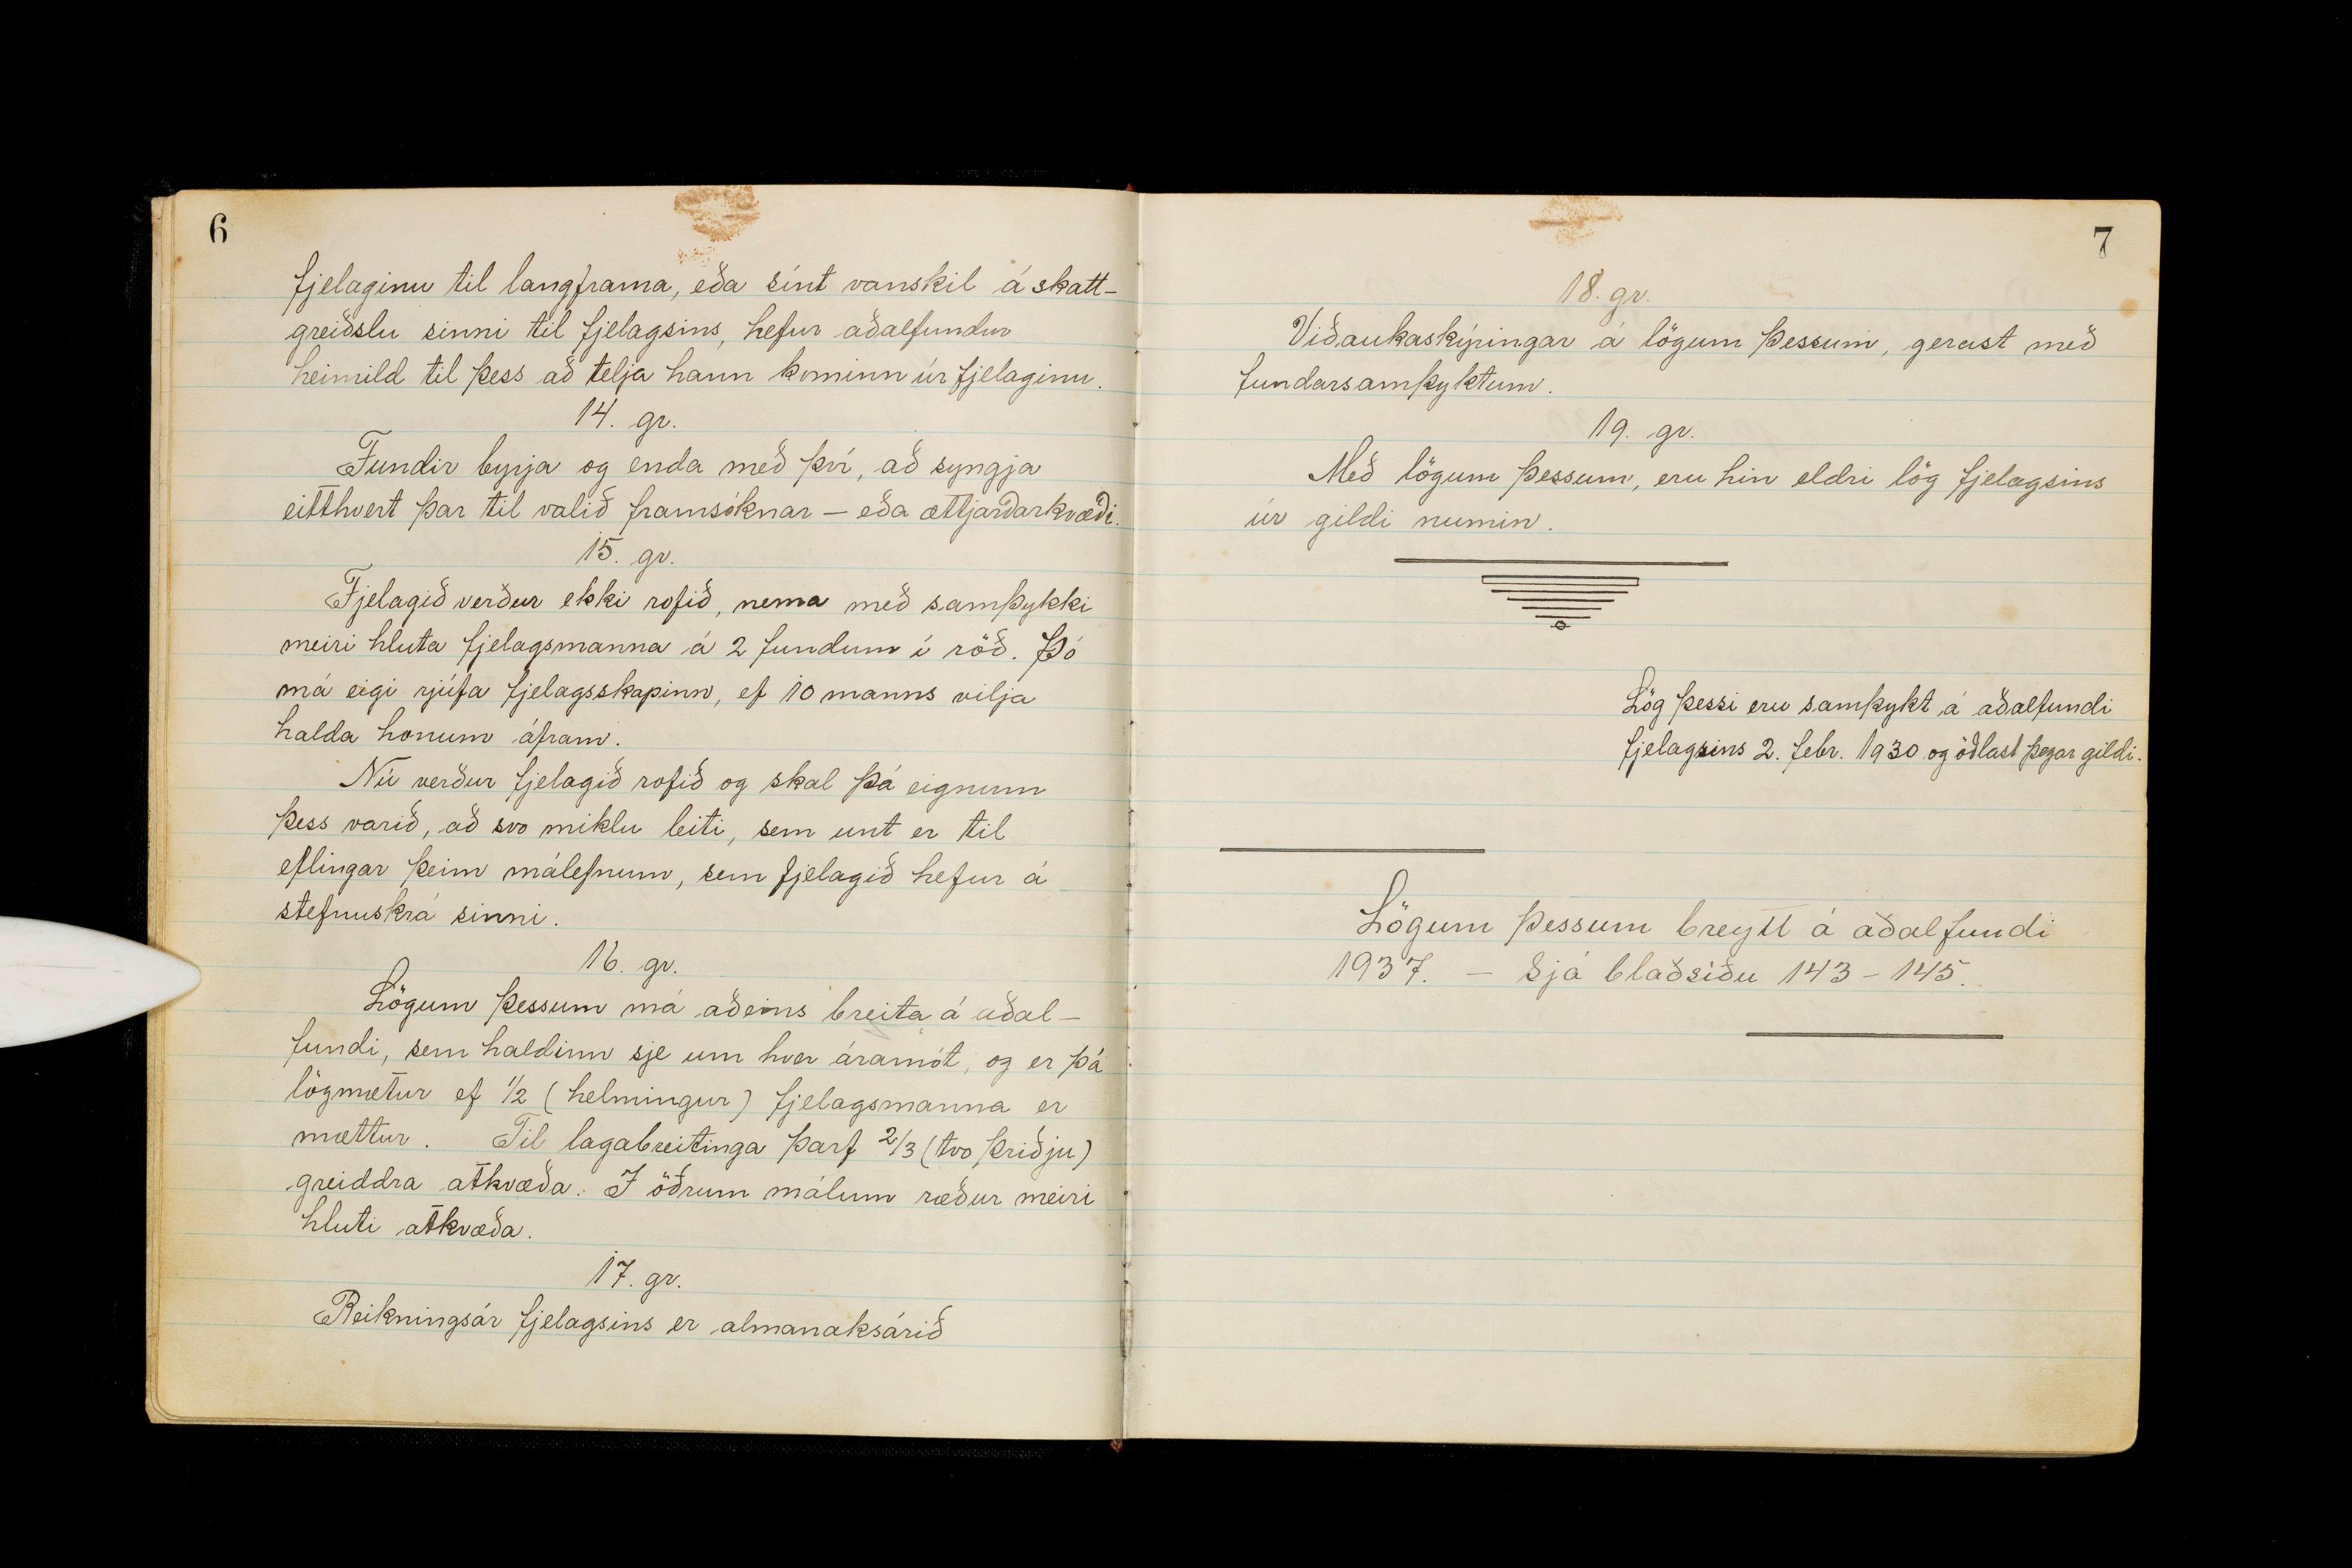 6
fjelaginu til langframa, eða sínt vanskil á skatt-
greiðslu sinni til fjelagsins, hefur aðalfundur
heimild til þess að telja hann kominn úr fjelaginu.
14. gr.
Fundir byrja og enda með því, að syngja
eitthvert þar til valið framsóknar – eða ættjarðarkvæði.
15. gr.
Fjelagið verður ekki rofið, nema með samþykki
meiri hluta fjelagsmanna á 2 fundum í röð. Þó
má eigi rjúfa fjelagsskapinn, ef 10 manns vilja
halda honum áfram.
Nú verður fjelagið rofið og skal þá eignum
þess varið, að svo miklu leiti, sem unt er til
eflingar þeim málefnum, sem fjelagið hefur á
stefnuskrá sinni.
16. gr.
Lögum þessum má aðeins breita á aðal-
fundi, sem haldinn sje um hver áramót, og er þá
lögmætur ef 1/2 (helmingur) fjelagsmanna er
mættur. Til lagabreitinga þarf 2/3 (tvo þriðju)
greiddra atkvæða. I öðrum málum ræður meiri
hluti atkvæða.
17. gr.
Reikningsár fjelagsins er almanaksárið
7
18. gr.
Viðaukaskýringar á lögum þessum, gerast með
fundarsamþyktum.
19. gr.
Með lögum þessum, eru hin eldri lög fjelagsins
úr gildi numin.
Lög þessi eru samþykt á aðalfundi
fjelagsins 2. febr. 1930 og öðlast þegar gildi.
Lögum þessum breytt á aðalfundi
1937. – Sjá blaðsíðu 143 – 145.